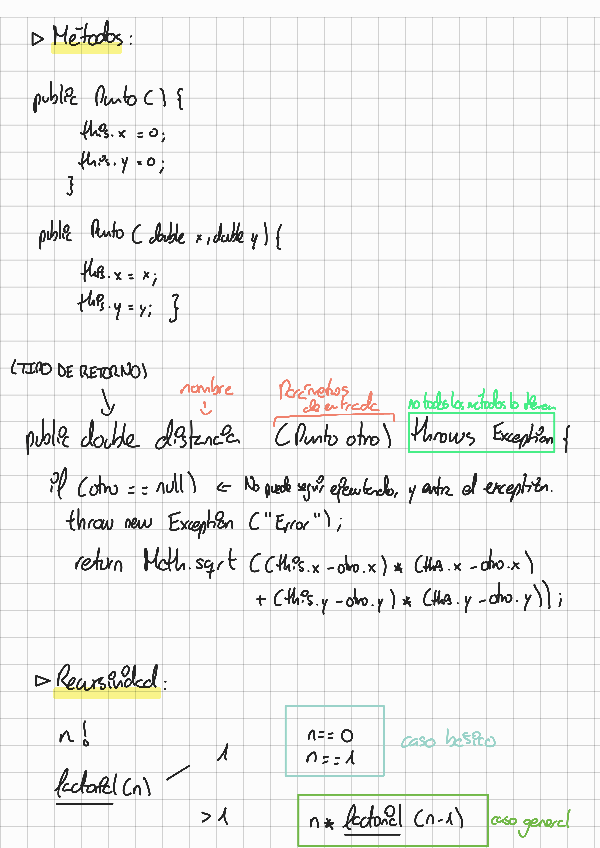 ▷ Métodos:
public Punto () {
this.x = 0;
this.y = 0;
}
public Punto (double x, double y) {
this.x = x;
this.y = y; }
(TIPO DE RETORNO)
nombre
Parámetros
de entrada
no todos los métodos lo llevan
public double distancia (Punto otro) throws Exception {
if (otro == null) ← No puede seguir ejecutando, y entra el exception.
throw new Exception ("Error");
return Math.sqrt ((this.x - otro.x) * (this.x - otro.x)
+ (this.y - otro.y) * (this.y - otro.y));
▷ Recursividad:
n!
factorial (n)
1
>1
n == 0
n == 1
caso básico
n * factorial (n-1)
caso general